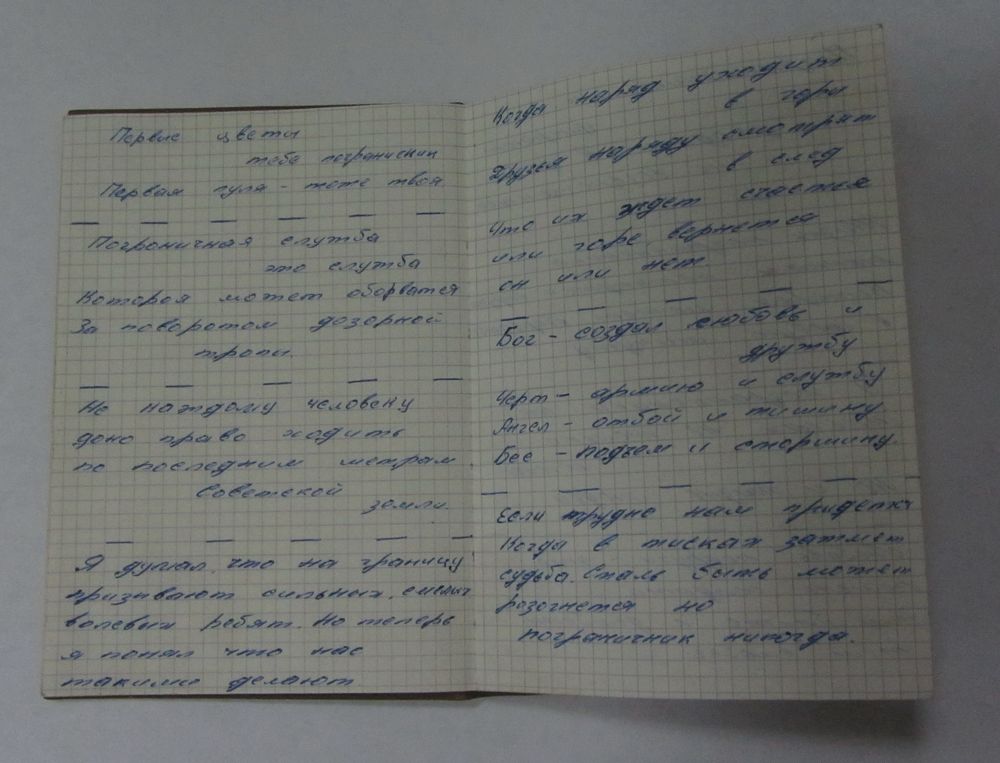 Первые цветы
тебе пограничник
Первая пуля - тоже твоя
Пограничная служба
это служба
Которая может оборватся
За поворотом дозорной
тропы.
Не каждому человеку
дано право ходить
по последним метрам
Советской
земли.
Я думал, что на границу
призывают сильных, смелых
волевых ребят. Но теперь
я понял что нас
такими делают
Когда наряд уходит
в горы
Друзья наряду смотрят
в след
Что их ждет счастья
или горе вернется
он или нет.
Бог - создал любовь и
дружбу
Черт - армию и службу
Ангел - отбой и тишину
Бес - подъем и старшину.
Если трудно нам придется
Когда в тисках зажмет
судьба. Сталь быть может
разогнется но
пограничник никогда.